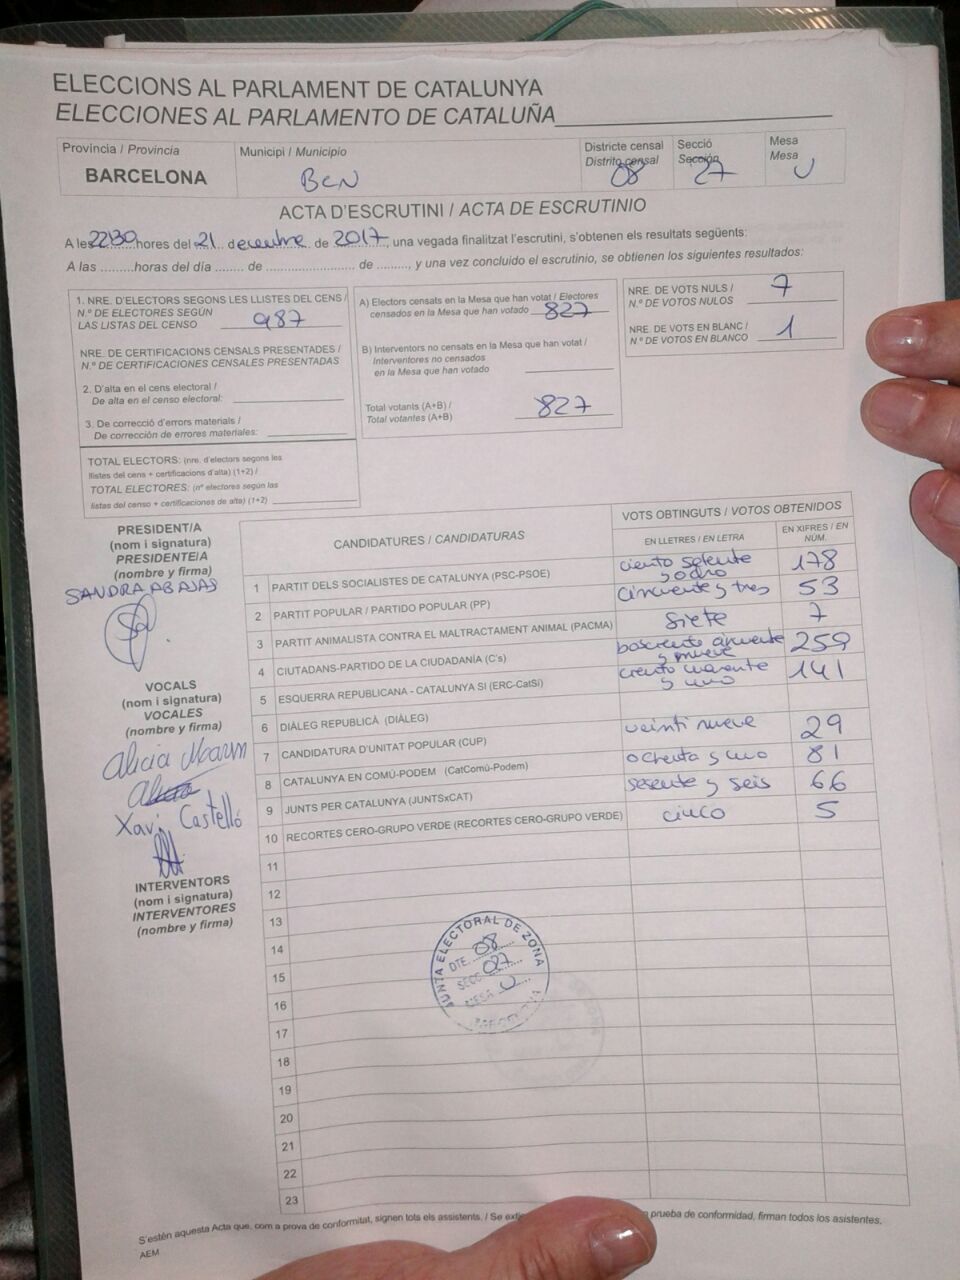 ELECCIONS AL PARLAMENT DE CATALUNYA
ELECCIONES AL PARLAMENTO DE CATALUÑA
Provincia / Provincia
BARCELONA
Municipi / Municipio
BCN
Districte censal
Distrito censal
08
Secció
Sección
27
Mesa
Mesa
U
ACTA D'ESCRUTINI / ACTA DE ESCRUTINIO
A les 22'30 hores del 21 decembre de 2017, una vegada finalitzat l'escrutini, s'obtenen els resultats següents:
A las .........horas del día ........ de ......................... de ........., y una vez concluido el escrutinio, se obtienen los siguientes resultados:
1. NRE. D'ELECTORS SEGONS LES LLISTES DEL CENS /
N.º DE ELECTORES SEGÚN
LAS LISTAS DEL CENSO 987
NRE. DE CERTIFICACIONS CENSALS PRESENTADES /
N.º DE CERTIFICACIONES CENSALES PRESENTADAS
2. D'alta en el cens electoral /
De alta en el censo electoral:
3. De correcció d'errors materials /
De corrección de errores materiales:
TOTAL ELECTORS: (nre. d'electors segons les
llistes del cens + certificacions d'alta) (1+2) /
TOTAL ELECTORES: (nº electores según las
listas del censo + certificaciones de alta) (1+2)
A) Electors censats en la Mesa que han votat / Electores
censados en la Mesa que han votado 827
B) Interventors no censats en la Mesa que han votat /
Interventores no censados
en la Mesa que han votado
Total votants (A+B) /
Total votantes (A+B) 827
NRE. DE VOTS NULS /
N.º DE VOTOS NULOS 7
NRE. DE VOTS EN BLANC /
N.º DE VOTOS EN BLANCO 1
PRESIDENT/A
(nom i signatura)
PRESIDENTE/A
(nombre y firma)
SANDRA ABAJAS
VOCALS
(nom i signatura)
VOCALES
(nombre y firma)
Alicia
Xavi Castelló
INTERVENTORS
(nom i signatura)
INTERVENTORES
(nombre y firma)
CANDIDATURES / CANDIDATURAS
VOTS OBTINGUTS / VOTOS OBTENIDOS
EN LLETRES / EN LETRA
EN XIFRES / EN NÚM.
1 PARTIT DELS SOCIALISTES DE CATALUNYA (PSC-PSOE) ciento setenta y ocho 178
2 PARTIT POPULAR / PARTIDO POPULAR (PP) cincuenta y tres 53
3 PARTIT ANIMALISTA CONTRA EL MALTRACTAMENT ANIMAL (PACMA) siete 7
4 CIUTADANS-PARTIDO DE LA CIUDADANÍA (C's) doscientos cincuenta y nueve 259
5 ESQUERRA REPUBLICANA - CATALUNYA SI (ERC-CatSí) ciento cuarenta y uno 141
6 DIÀLEG REPUBLICÀ (DIÀLEG)
7 CANDIDATURA D'UNITAT POPULAR (CUP) veinti nueve 29
8 CATALUNYA EN COMÚ-PODEM (CatComú-Podem) ochenta y uno 81
9 JUNTS PER CATALUNYA (JUNTSxCAT) sesenta y seis 66
10 RECORTES CERO-GRUPO VERDE (RECORTES CERO-GRUPO VERDE) cinco 5
11
12
13
14
15
16
17
18
19
20
21
22
23
JUNTA ELECTORAL DE ZONA
DTE. 08
SECC. 027
MESA U
S'estén aquesta Acta que, com a prova de conformitat, signen tots els assistents. / Se prueba de conformidad, firman todos los asistentes.
AEM